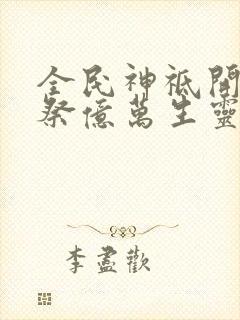 全民神祇開
祭億萬生靈
李盡歡